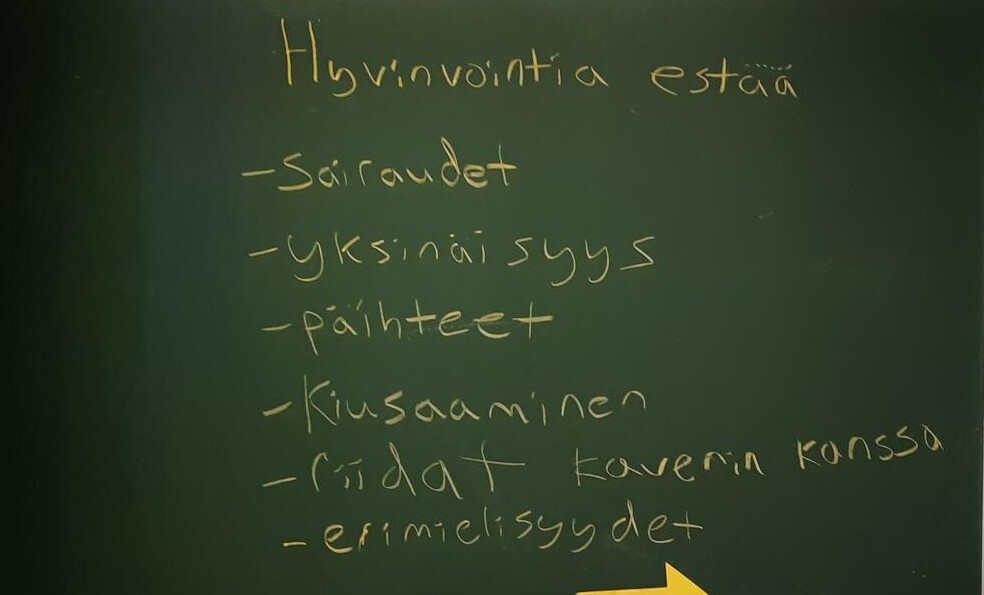 Hyvinvointia estää
- Sairaudet
- yksinäisyys
- päihteet
- Kiusaaminen
- riidat kaverin kanssa
- erimielisyydet